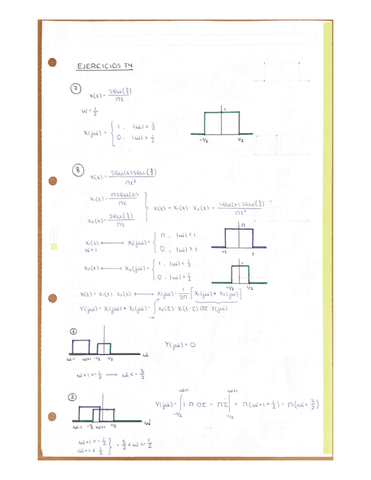 EJERCICIOS T4
7
x(t) = sen(t/2) / πt
W = 1/2
X(jω) = { 1, |ω| < 1/2
0, |ω| > 1/2
1
-1/2 1/2
8
x(t) = sen(t) sen(t/2) / πt²
x₁(t) = π sen(t) / πt
x₂(t) = sen(t/2) / πt
x(t) = x₁(t) · x₂(t) = sen(t) · sen(t/2) / πt²
x₁(t) ⟷ X₁(jω) = { π, |ω| < 1
W=1
0, |ω| > 1
π
x₂(t) ⟷ X₂(jω) = { 1, |ω| < 1/2
0, |ω| > 1/2
1
-1/2 1/2
x(t) = x₁(t) · x₂(t) ⟷ X(jω) = 1/2π [X₁(jω) * X₂(jω)]
Y(jω) = X₁(jω) * X₂(jω) = ∫ x₂(τ) x₁(t-τ) dτ Y(jω)
1
Y(jω) = 0
ω-1 ω+1 -1/2 1/2 ω
ω+1 < -1/2 ⟶ ω < -3/2
2
Y(jω) = ∫ 1·π dτ = πτ | = π(ω+1+1/2) = π(ω+3/2)
ω+1 ω+1
-1/2 -1/2
ω-1 -1/2 ω+1 1/2 ω
ω+1 > -1/2
ω+1 < 1/2 } -3/2 < ω < -1/2